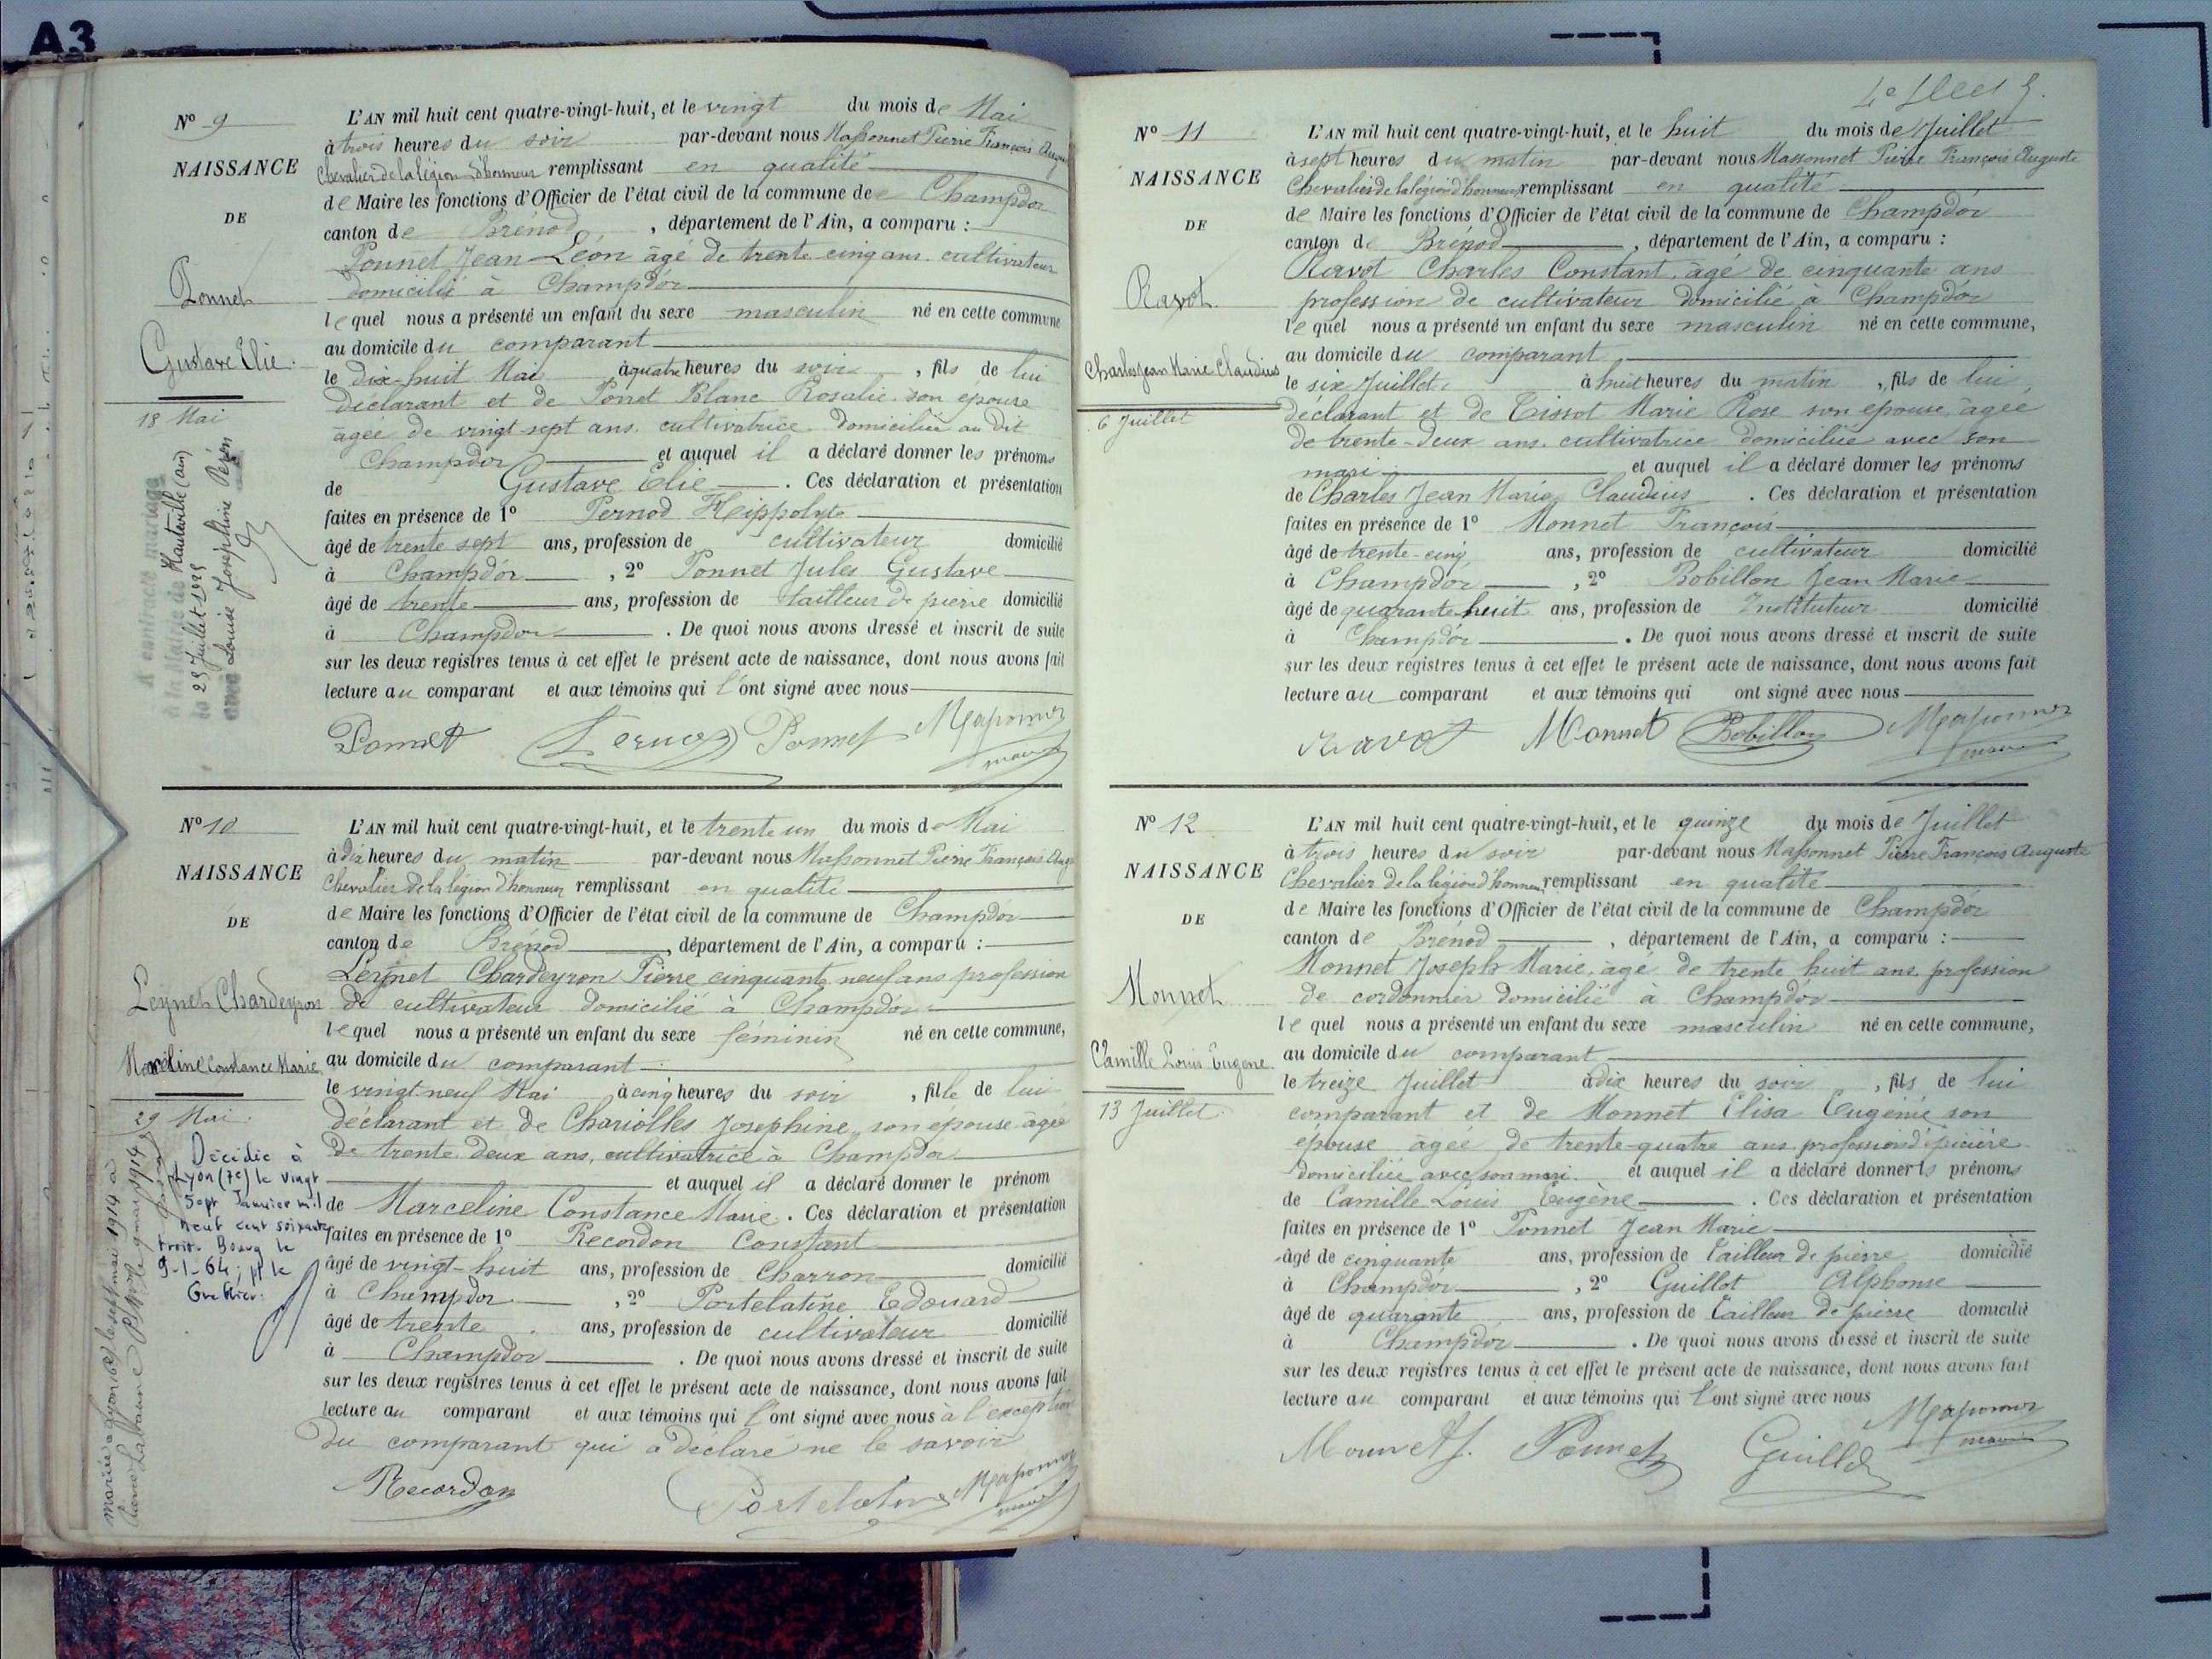 A3
Nº 9
NAISSANCE
DE
Ponnet
Gustave Elie.
18 Mai
A contracté mariage
à la Mairie de Hauteville (Ain)
le 25 Juillet 1925
avec Louise Joséphine
L'AN mil huit cent quatre-vingt-huit, et le vingt du mois de Mai
à trois heures du soir par-devant nous Massonnet Pierre François Augu
Chevalier de la légion d'honneur remplissant en qualité
de Maire les fonctions d'Officier de l'état civil de la commune de Champdor
canton de Brénod, département de l'Ain, a comparu :
Ponnet Jean Léon âgé de trente cinq ans. cultivateur
domicilié à Champdor
lequel nous a présenté un enfant du sexe masculin né en cette commune
au domicile du comparant
le dix-huit Mai à quatre heures du soir, fils de lui
déclarant et de Ponnet Blanc Rosalie son épouse
âgée de vingt sept ans. cultivatrice. domiciliée au dit
Champdor et auquel il a déclaré donner les prénoms
de Gustave Elie. Ces déclaration et présentation
faites en présence de 1º Pernod Hippolyte
âgé de trente sept ans, profession de cultivateur domicilié
à Champdor, 2º Ponnet Jules Gustave
âgé de trente ans, profession de tailleur de pierre domicilié
à Champdor. De quoi nous avons dressé et inscrit de suite
sur les deux registres tenus à cet effet le présent acte de naissance, dont nous avons fait
lecture au comparant et aux témoins qui l'ont signé avec nous
Ponnet Pernod Ponnet Massonnet
maire
Nº 10
NAISSANCE
DE
Leynet Chardeyron
Marceline Constance Marie
29 Mai.
Décidée à
Lyon (7e) le vingt
sept Janvier mil
neuf cent soixante
trois. Bourg le
9-1-64; pt le
Greffier:
Mariée à Lyon le sept mai 1914 à
L'AN mil huit cent quatre-vingt-huit, et le trente un du mois de Mai
à dix heures du matin par-devant nous Massonnet Pierre François Aug
Chevalier de la légion d'honneur remplissant en qualité
de Maire les fonctions d'Officier de l'état civil de la commune de Champdor
canton de Brénod, département de l'Ain, a comparu :
Leynet Chardeyron Pierre cinquante neuf ans profession
de cultivateur domicilié à Champdor
lequel nous a présenté un enfant du sexe féminin né en cette commune,
au domicile du comparant
le vingt neuf Mai à cinq heures du soir, fille de lui
déclarant et de Chariolles Josephine, son épouse âgée
de trente deux ans, cultivatrice à Champdor
et auquel il a déclaré donner le prénom
de Marceline Constance Marie. Ces déclaration et présentation
faites en présence de 1º Recordon Constant
âgé de vingt-huit ans, profession de Charron domicilié
à Champdor, 2º Portelatine Edouard
âgé de trente ans, profession de cultivateur domicilié
à Champdor. De quoi nous avons dressé et inscrit de suite
sur les deux registres tenus à cet effet le présent acte de naissance, dont nous avons fait
lecture au comparant et aux témoins qui l'ont signé avec nous à l'exception
du comparant qui a déclaré ne le savoir
Recordon Portelatine Massonnet
maire
Nº 11
NAISSANCE
DE
Ravot
Charles Jean Marie Claudius
6 Juillet
L'AN mil huit cent quatre-vingt-huit, et le huit du mois de Juillet
à sept heures du matin par-devant nous Massonnet Pierre François Auguste
Chevalier de la légion d'honneur, remplissant en qualité
de Maire les fonctions d'Officier de l'état civil de la commune de Champdor
canton de Brénod, département de l'Ain, a comparu :
Ravot Charles Constant, âgé de cinquante ans
profession de cultivateur domicilié à Champdor
lequel nous a présenté un enfant du sexe masculin né en cette commune,
au domicile du comparant
le six Juillet, à huit heures du matin, fils de lui,
déclarant et de Tissot Marie Rose son épouse, âgée
de trente-deux ans. cultivatrice domiciliée avec son
mari et auquel il a déclaré donner les prénoms
de Charles Jean Marie Claudius. Ces déclaration et présentation
faites en présence de 1º Monnet François
âgé de trente-cinq ans, profession de cultivateur domicilié
à Champdor, 2º Bobillon Jean Marie
âgé de quarante-huit ans, profession de Instituteur domicilié
à Champdor. De quoi nous avons dressé et inscrit de suite
sur les deux registres tenus à cet effet le présent acte de naissance, dont nous avons fait
lecture au comparant et aux témoins qui ont signé avec nous
Ravot Monnet Bobillon Massonnet
maire
Nº 12
NAISSANCE
DE
Monnet
Camille Louis Eugène.
13 Juillet.
L'AN mil huit cent quatre-vingt-huit, et le quinze du mois de Juillet
à trois heures du soir par-devant nous Massonnet Pierre François Auguste
Chevalier de la légion d'honneur, remplissant en qualité
de Maire les fonctions d'Officier de l'état civil de la commune de Champdor
canton de Brénod, département de l'Ain, a comparu :
Monnet Joseph Marie, âgé de trente huit ans. profession
de cordonnier domicilié à Champdor
lequel nous a présenté un enfant du sexe masculin né en cette commune,
au domicile du comparant
le treize Juillet à dix heures du soir, fils de lui
comparant et de Monnet Elisa Eugénie son
épouse âgée de trente-quatre ans. profession d'épicière
domiciliée avec son mari. et auquel il a déclaré donner ls prénoms
de Camille Louis Eugène. Ces déclaration et présentation
faites en présence de 1º Ponnet Jean Marie
âgé de cinquante ans, profession de Tailleur de pierre domicilié
à Champdor, 2º Guillot Alphonse
âgé de quarante ans, profession de Tailleur de pierre domicilié
à Champdor. De quoi nous avons dressé et inscrit de suite
sur les deux registres tenus à cet effet le présent acte de naissance, dont nous avons fait
lecture au comparant et aux témoins qui l'ont signé avec nous
Monnet J. Ponnet Guillot Massonnet
maire